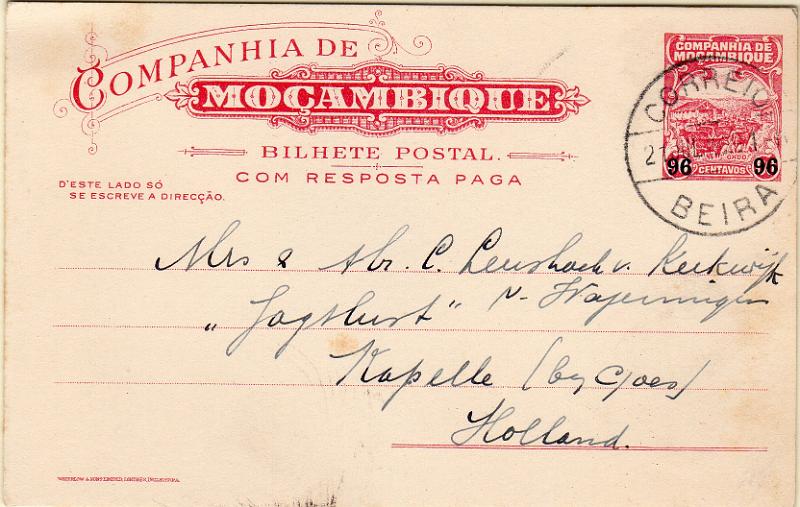 COMPANHIA DE
MOÇAMBIQUE
BILHETE POSTAL.
COM RESPOSTA PAGA
D'ESTE LADO SÓ
SE ESCREVE A DIRECÇÃO.
COMPANHIA DE
MOÇAMBIQUE
96 96
CENTAVOS
CORREIO
BEIRA
Mrs & C. v. Kerkwijk
"Jagtlust" v. Wageningen
Kapelle (by Goes)
Holland.
WATERLOW & SONS LIMITED, LONDRES, INGLATERRA.